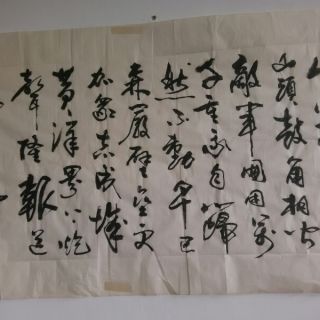 山頭鼓角相聞
敵軍圍困萬
千重我自巋
然不動早已
森嚴壁壘更
加眾志成城
黃洋界上炮
聲隆報道